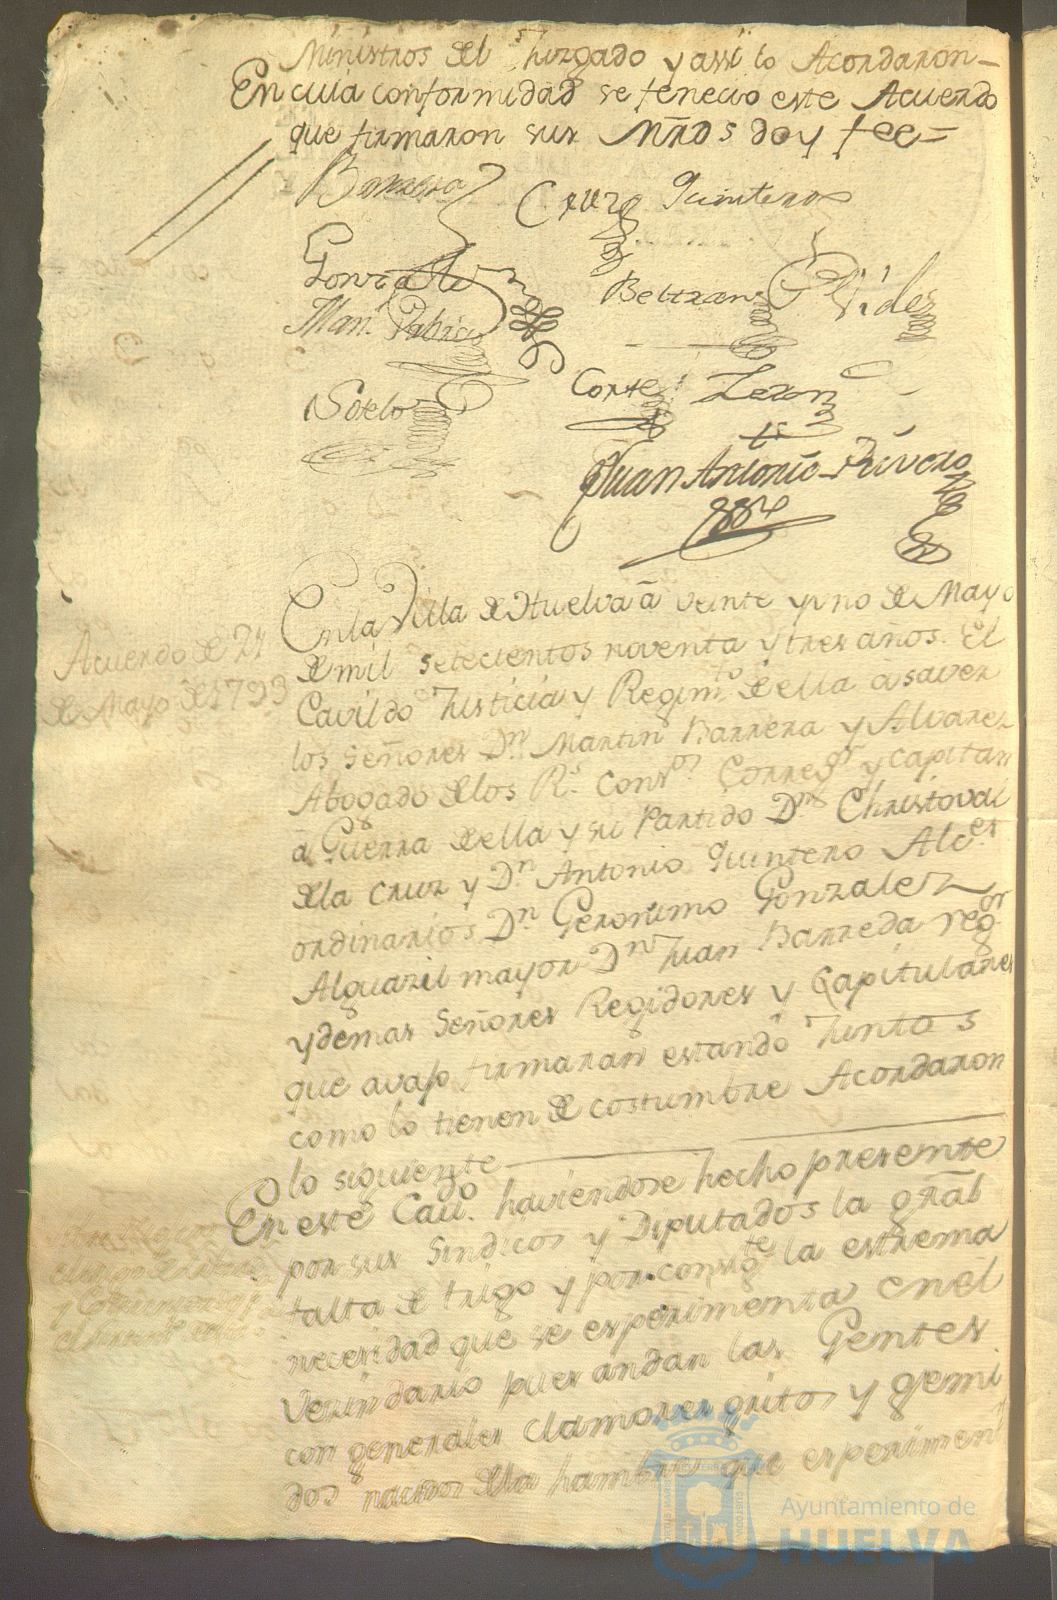 Ministros del Juzgado y assi lo Acordaron–
En cuia conformidad se fenecio este Acuerdo
que firmaron sus Mrds doy fee=
Barrera Cruz Quintero
Gonzalez Beltran Vides
Man. Patricio
Sotelo Corte Lezon
Juan Antonio Rivero
En la Villa de Huelva â veinte y uno de Mayo
Acuerdo de 21
de mil setecientos noventa y tres años. El
de Mayo de 1793
Cavildo Justicia y Regimto. de ella â saver
los señores Dn. Martin Barrera y Alvarez
Abogado de los Rs. Consos. Corregor. y capitan
â Guerra de ella y su Partido Dns. Christoval
de la Cruz y Dn. Antonio Quintero Alces.
ordinarios Dn Geronimo Gonzalez
Alguazil mayor Dn Juan Barreda regor.
y demas Señores Regidores y Capitulares
que avajo firmaran estando Juntos
como lo tienen de costumbre Acordaron
lo siguiente
En este Cavdo. haviendose hecho presente
por sus Sindicos y Diputados la gñal
falta de trigo y por consigte. la estrema
necesidad que se esperimenta en el
Vecindario pues andan las Gentes
con generales clamores gritos y gemi
dos nacidos de la hambre que esperimen
Ayuntamiento de
HUELVA